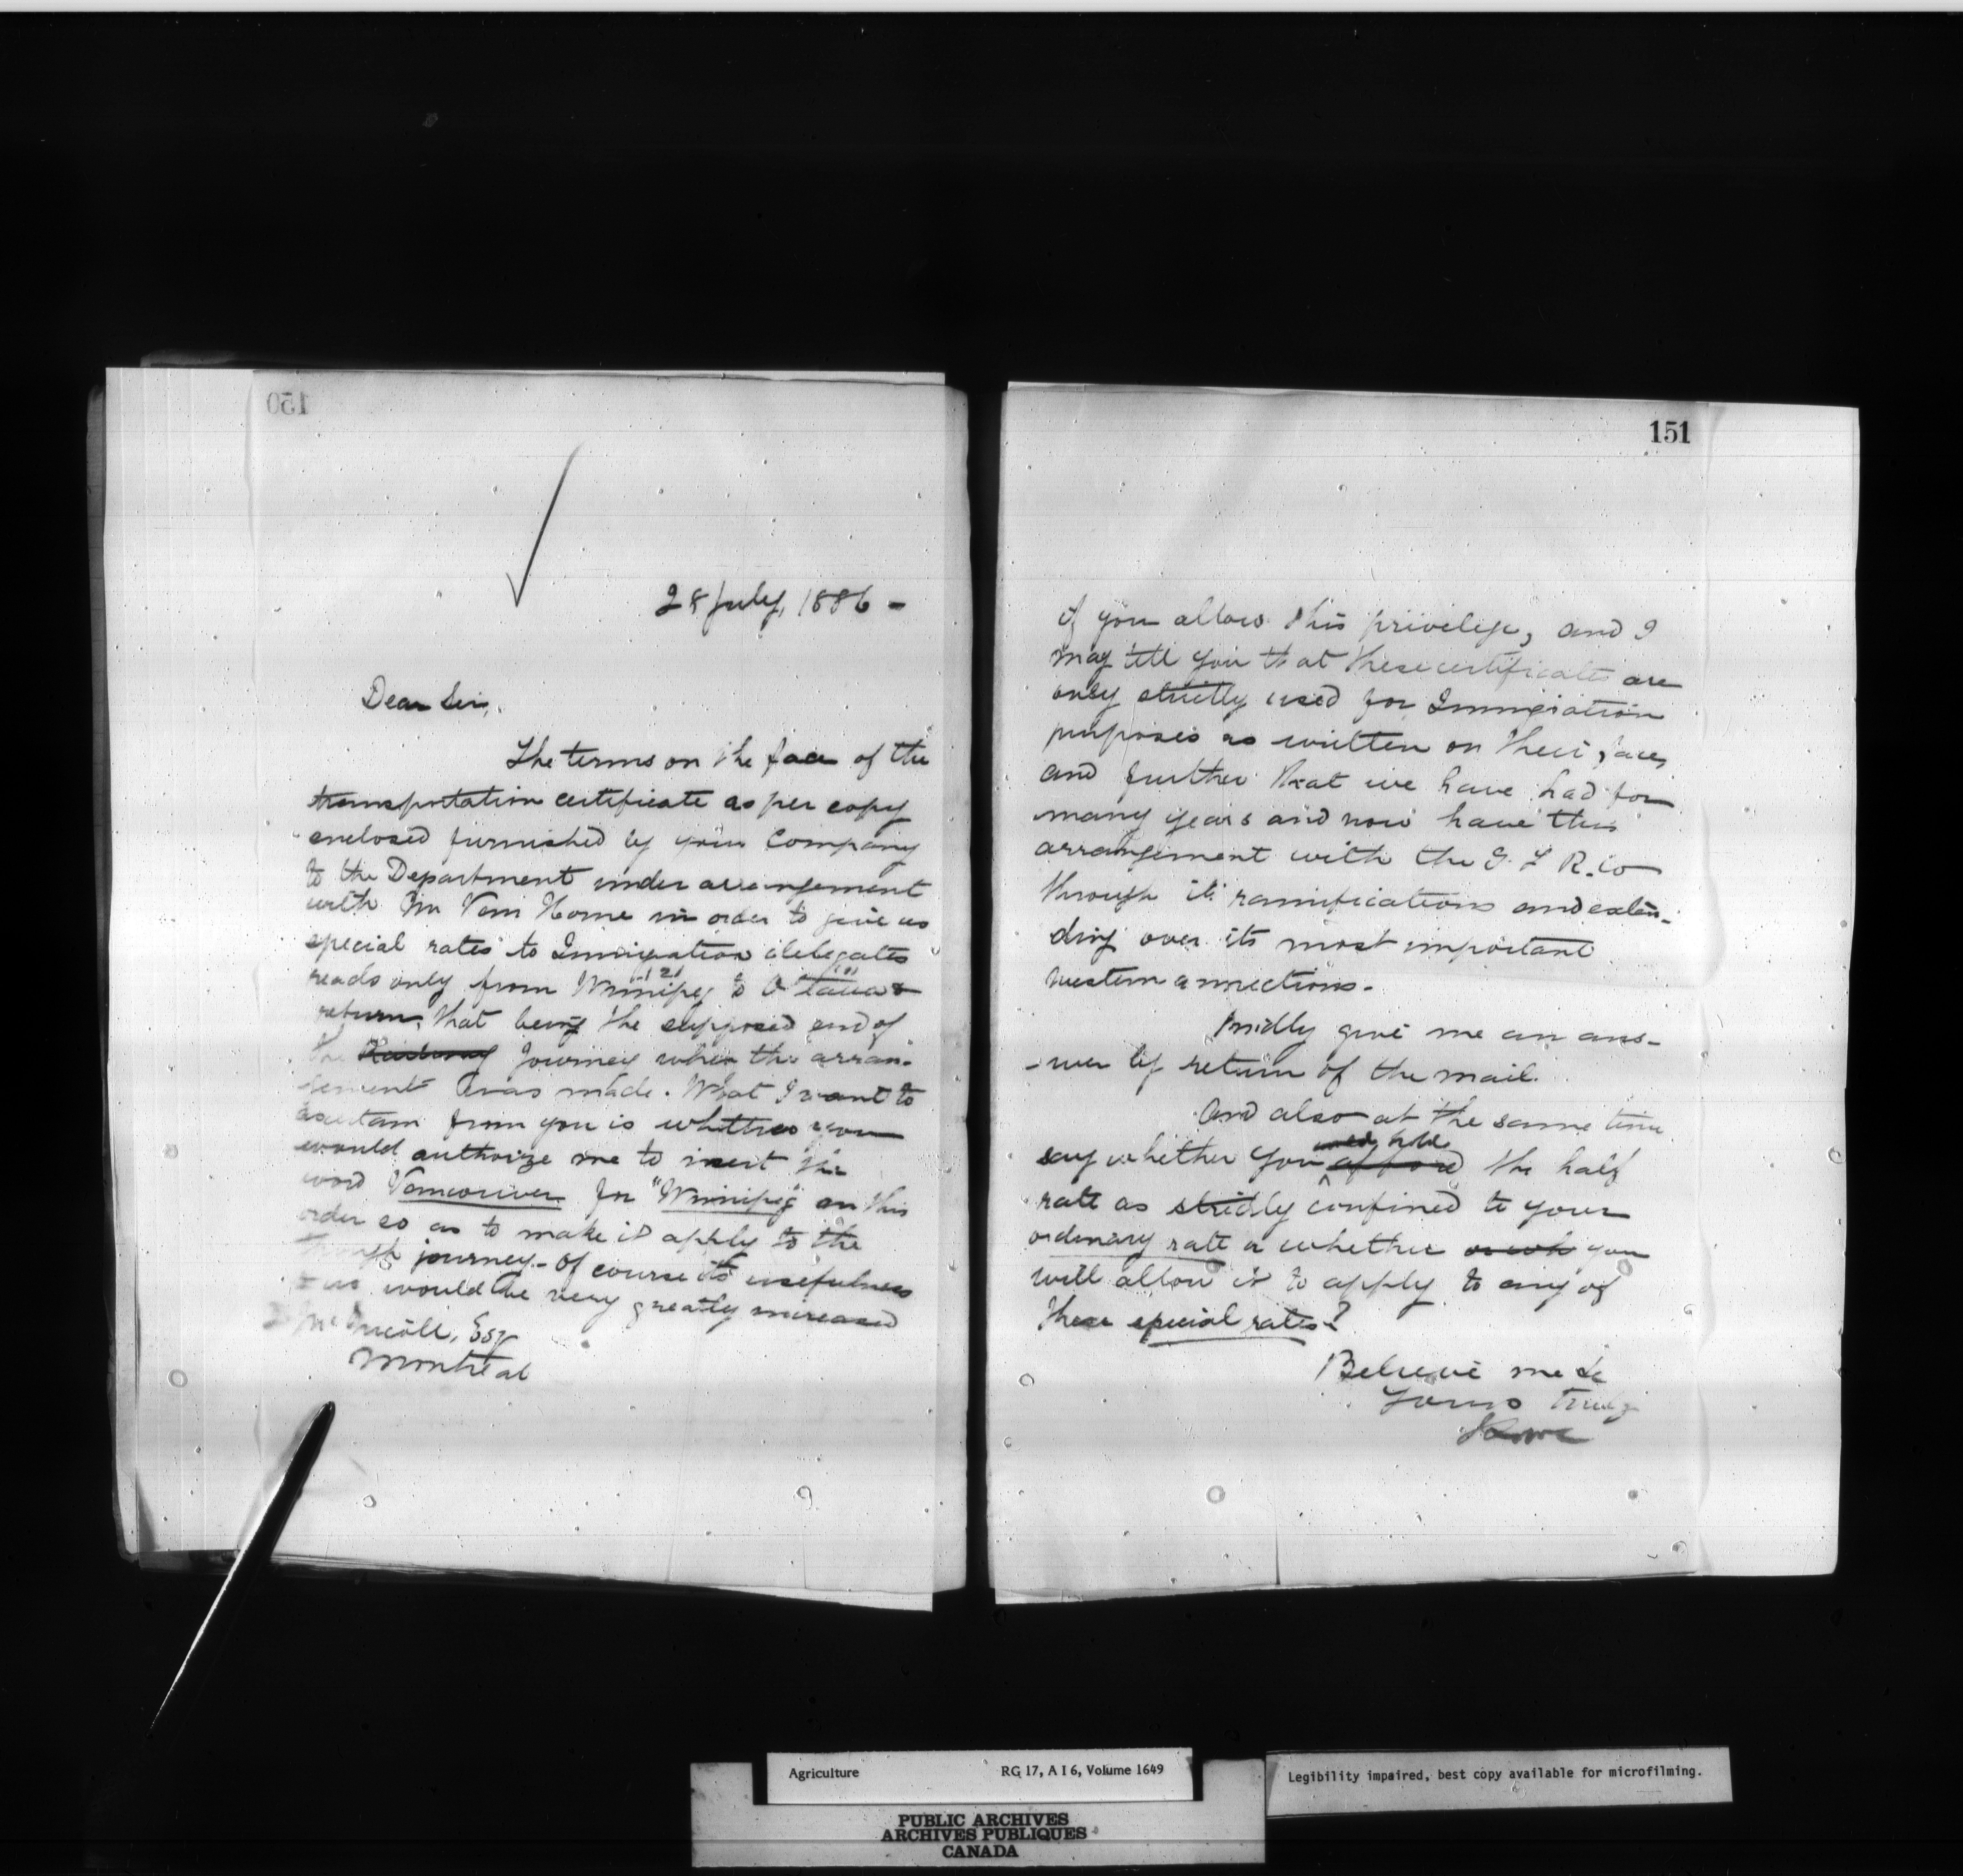 150
28 July, 1886 -
Dear Sir,
The terms on the face of the
transportation certificate as per copy
enclosed furnished by your Company
to the Department under arrangement
with Mr Van Horne in order to give us
special rates to Immigration delegates
reads only from Winnipeg to Ottawa &
return, that being the supposed end of
the Railway journey when the arran-
gement was made. What I want to
ascertain from you is whether you
would authorize me to insert the
word Vancouver for "Winnipeg" on this
order so as to make it apply to the
through journey - Of course its usefulness
to us would be very greatly increased
D McNicoll, Esq
Montreal
151
if you allow this privilege, and I
may tell you that these certificates are
only strictly used for Immigration
purposes as written on their faces,
and further that we have had for
many years and now have this
arrangement with the G. T. R. Co
through its ramifications and exten-
ding over its most important
western connections.
Kindly give me an ans-
-wer by return of the mail.
And also at the same time
say whether you afford the half
rate as strictly confined to your
ordinary rate or whether you
will allow it to apply to any of
these special rates?
Believe me to
Yours truly
Lowe
Agriculture RG 17, A I 6, Volume 1649
Legibility impaired, best copy available for microfilming.
PUBLIC ARCHIVES
ARCHIVES PUBLIQUES
CANADA